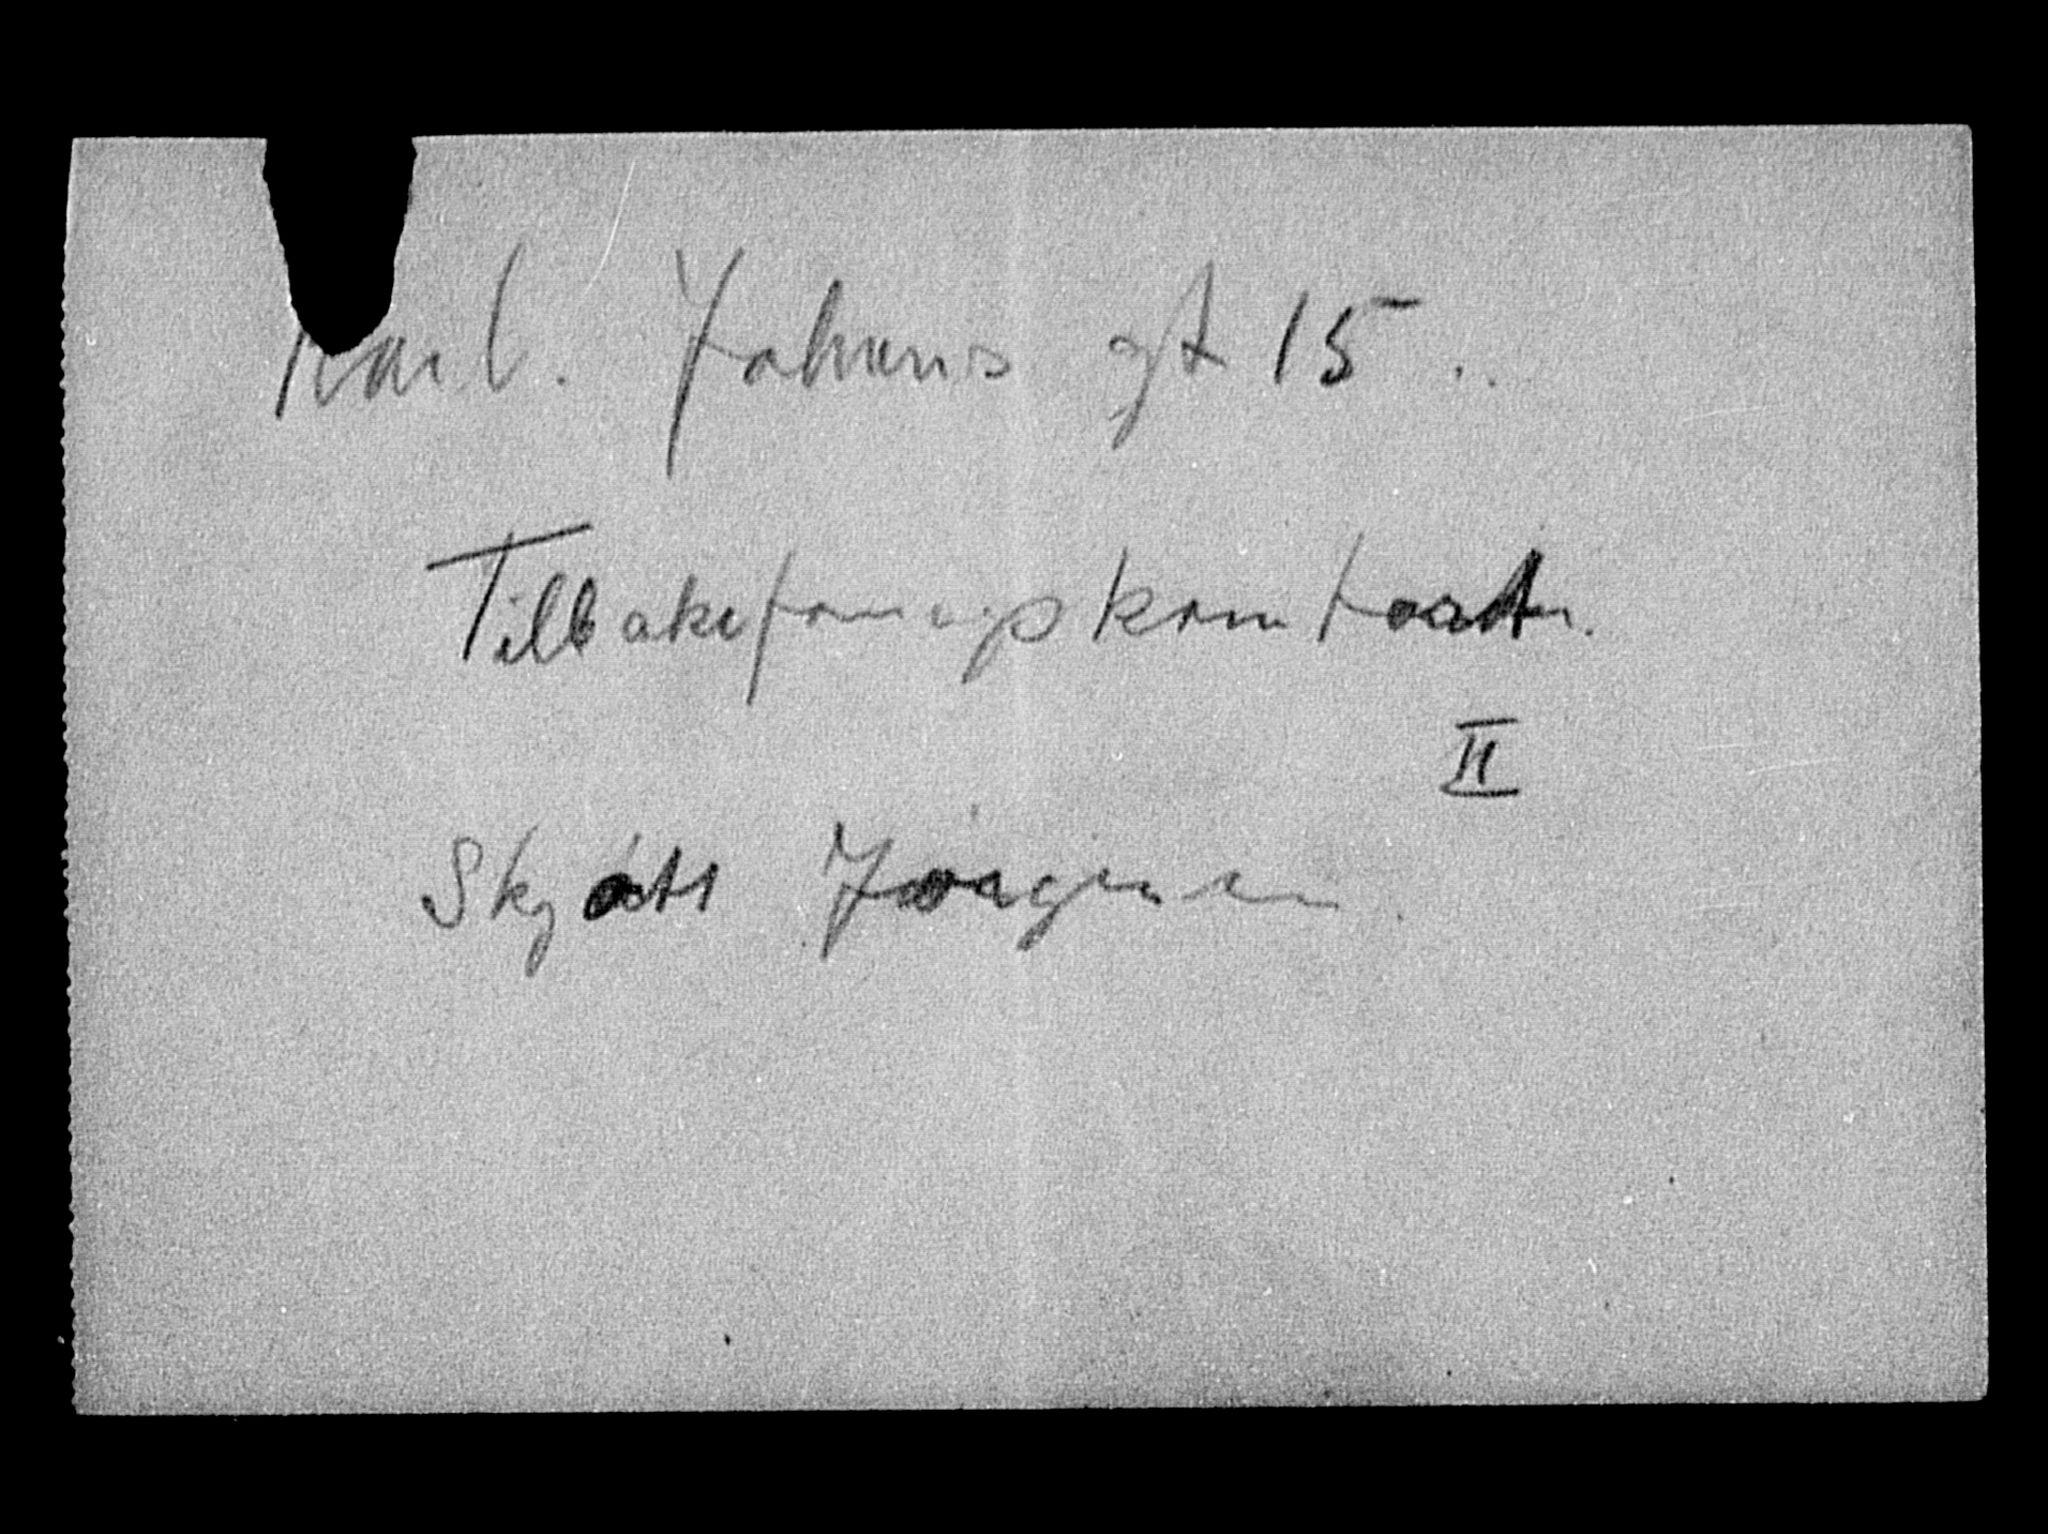 Karl. Johans gt 15..
Tilbakeføringskontoret.
II
Skjøtt Jørgensen.